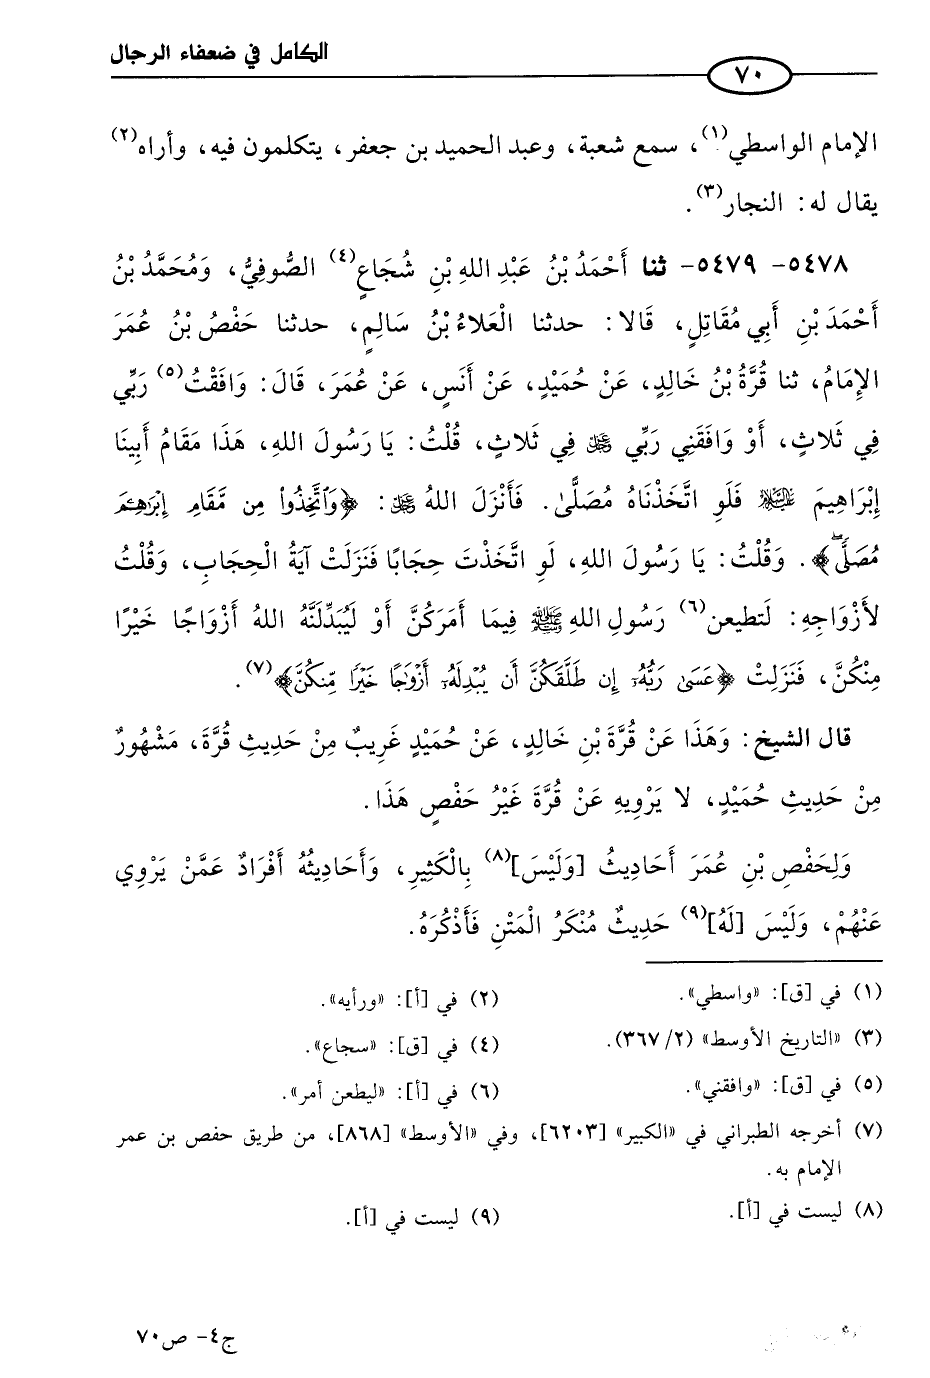 الكامل في ضعفاء الرجال
٧٠
الإمام الواسطي(١)، سمع شعبة، وعبد الحميد بن جعفر، يتكلمون فيه، وأراه(٢)
يقال له: النجار(٣).
٥٤٧٨- ٥٤٧٩- ثنا أَحْمَدُ بْنُ عَبْدِ اللهِ بْنِ شُجَاعٍ(٤) الصُّوفِيُّ، وَمُحَمَّدُ بْنُ
أَحْمَدَ بْنِ أَبِي مُقَاتِلٍ، قَالا: حدثنا الْعَلاءُ بْنُ سَالِمٍ، حدثنا حَفْصُ بْنُ عُمَرَ
الإِمَامُ، ثنا قُرَّةُ بْنُ خَالِدٍ، عَنْ حُمَيْدٍ، عَنْ أَنَسٍ، عَنْ عُمَرَ، قَالَ: وَافَقْتُ(٥) رَبِّي
فِي ثَلاثٍ، أَوْ وَافَقَنِي رَبِّي ﷻ فِي ثَلاثٍ، قُلْتُ: يَا رَسُولَ اللهِ، هَذَا مَقَامُ أَبِينَا
إِبْرَاهِيمَ عَلَيْهِ السَّلَامُ فَلَوِ اتَّخَذْنَاهُ مُصَلًّى. فَأَنْزَلَ اللهُ ﷻ: ﴿وَٱتَّخِذُواْ مِن مَّقَامِ إِبْرَٰهِـۧمَ
مُصَلًّىۖ﴾. وَقُلْتُ: يَا رَسُولَ اللهِ، لَوِ اتَّخَذْتَ حِجَابًا فَنَزَلَتْ آيَةُ الْحِجَابِ، وَقُلْتُ
لأَزْوَاجِهِ: لَتطيعن(٦) رَسُولِ اللهِ ﷺ فِيمَا أَمَرَكُنَّ أَوْ لَيُبَدِّلَنَّهُ اللهُ أَزْوَاجًا خَيْرًا
مِنْكُنَّ، فَنَزَلِتْ ﴿عَسَىٰ رَبُّهُۥٓ إِن طَلَّقَكُنَّ أَن يُبْدِلَهُۥٓ أَزْوَٰجًا خَيْرًا مِّنكُنَّ﴾(٧).
قال الشيخ: وَهَذَا عَنْ قُرَّةَ بْنِ خَالِدٍ، عَنْ حُمَيْدٍ غَرِيبٌ مِنْ حَدِيثِ قُرَّةَ، مَشْهُورٌ
مِنْ حَدِيثِ حُمَيْدٍ، لا يَرْوِيهِ عَنْ قُرَّةَ غَيْرُ حَفْصٍ هَذَا.
وَلِحَفْصِ بْنِ عُمَرَ أَحَادِيثُ [وَلَيْسَ](٨) بِالْكَثِيرِ، وَأَحَادِيثُهُ أَفْرَادٌ عَمَّنْ يَرْوِي
عَنْهُمْ، وَلَيْسَ [لَهُ](٩) حَدِيثٌ مُنْكَرُ الْمَتْنِ فَأَذْكُرَهُ.
(١) في [ق]: «واسطي».
(٢) في [أ]: «ورأيه».
(٣) «التاريخ الأوسط» (٢/ ٣٦٧).
(٤) في [ق]: «سجاع».
(٥) في [ق]: «وافقني».
(٦) في [أ]: «ليطعن أمر».
(٧) أخرجه الطبراني في «الكبير» [٦٢٠٣]، وفي «الأوسط» [٨٦٨]، من طريق حفص بن عمر
الإمام به.
(٨) ليست في [أ].
(٩) ليست في [أ].
ج٤- ص٧٠